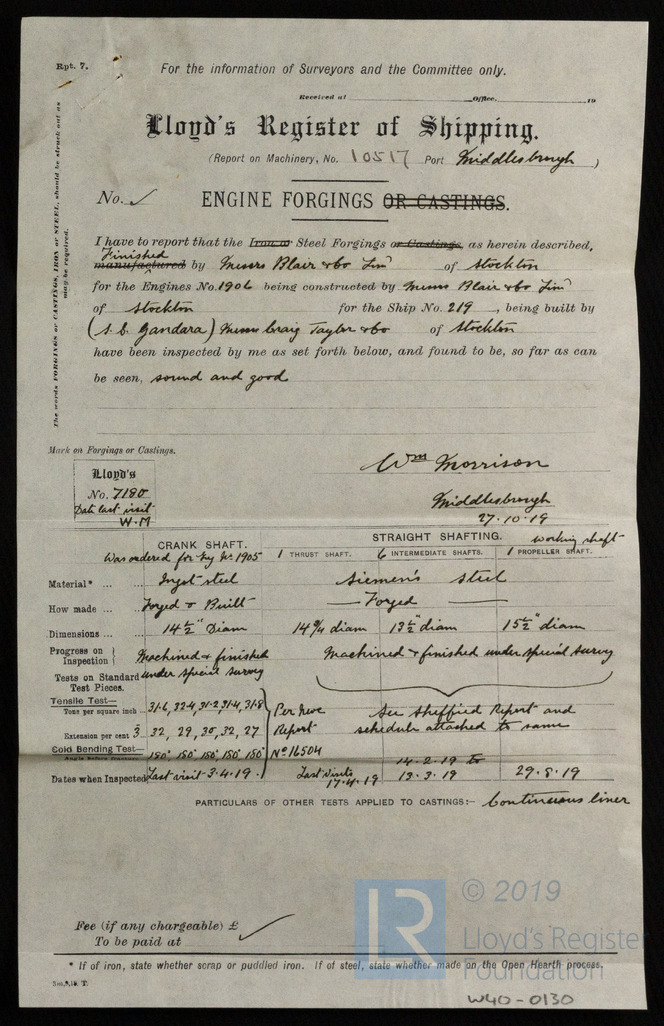 Rpt. 7.
For the information of Surveyors and the Committee only.
Received at Office, 19
Lloyd's Register of Shipping.
(Report on Machinery, No. 10517 Port Middlesbrough )
No. ✓ ENGINE FORGINGS OR CASTINGS.
The words FORGINGS or CASTINGS, IRON or STEEL, should be struck out as
may be required.
I have to report that the Iron or Steel Forgings or Castings, as herein described,
Finished
manufactured by Messrs Blair & Co Limd of Stockton
for the Engines No. 1906 being constructed by Messrs Blair & Co Limd
of Stockton for the Ship No. 219, being built by
(S.S. Gandara) Messrs Craig Taylor & Co of Stockton
have been inspected by me as set forth below, and found to be, so far as can
be seen, sound and good
Mark on Forgings or Castings.
Lloyd's
No. 7180
Date last visit
W.M
Wm Morrison
Middlesbrough
27.10.19
CRANK SHAFT. STRAIGHT SHAFTING. working shaft
Was ordered for Eng No. 1905 1 THRUST SHAFT. 6 INTERMEDIATE SHAFTS. 1 PROPELLER SHAFT.
Material* ... ... Ingot steel Siemen's steel
How made ... ... Forged & Built Forged
Dimensions ... ... 14½" Diam 14¾ diam 13½" diam 15½" diam
Progress on Inspection } Machined & finished under special survey Machined & finished under special survey
Tests on Standard Test Pieces.
Tensile Test—
Tons per square inch ... 31.6, 32.4, 31.2, 31.4, 31.8 Per New See Sheffield Report and
Extension per cent 3 32, 29, 30, 32, 27 Report schedule attached to same
Cold Bending Test—
Angle before fracture 180° 180° 180° 180° 180° No 16504
Dates when Inspected Last visit 3.4.19. Last visits 17.4.19 14.2.19 to 13.3.19 29.8.19
PARTICULARS OF OTHER TESTS APPLIED TO CASTINGS:— Continuous liner
Fee (if any chargeable) £ ✓
To be paid at
* If of iron, state whether scrap or puddled iron. If of steel, state whether made on the Open Hearth process.
LR
© 2019
Lloyd's Register
Foundation
W40-0130